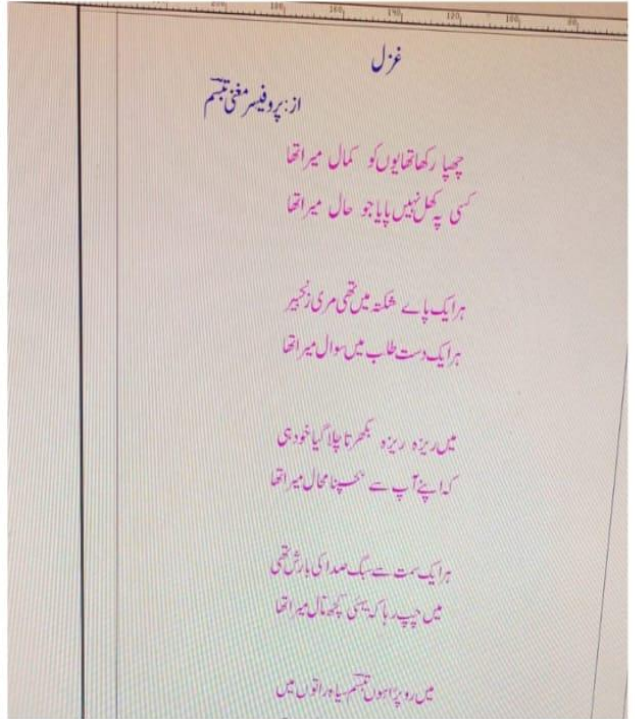 غزل
از: پروفیسر مغنی تبسم
چھپا رکھا تھا یوں کو کمال میرا تھا
کسی پہ کھل نہیں پایا جو حال میرا تھا
ہر ایک پاے شکستہ میں تھی مری زنجیر
ہر ایک دست طلب میں سوال میرا تھا
میں ریزہ ریزہ بکھرتا چلا گیا خود ہی
کہ اپنے آپ سے بچنا محال میرا تھا
ہر ایک سمت سے سنگ صدا کی بارش تھی
میں چپ رہا کہ یہی کچھ مآل میرا تھا
میں رو پڑا ہوں تبسم سیاہ راتوں میں